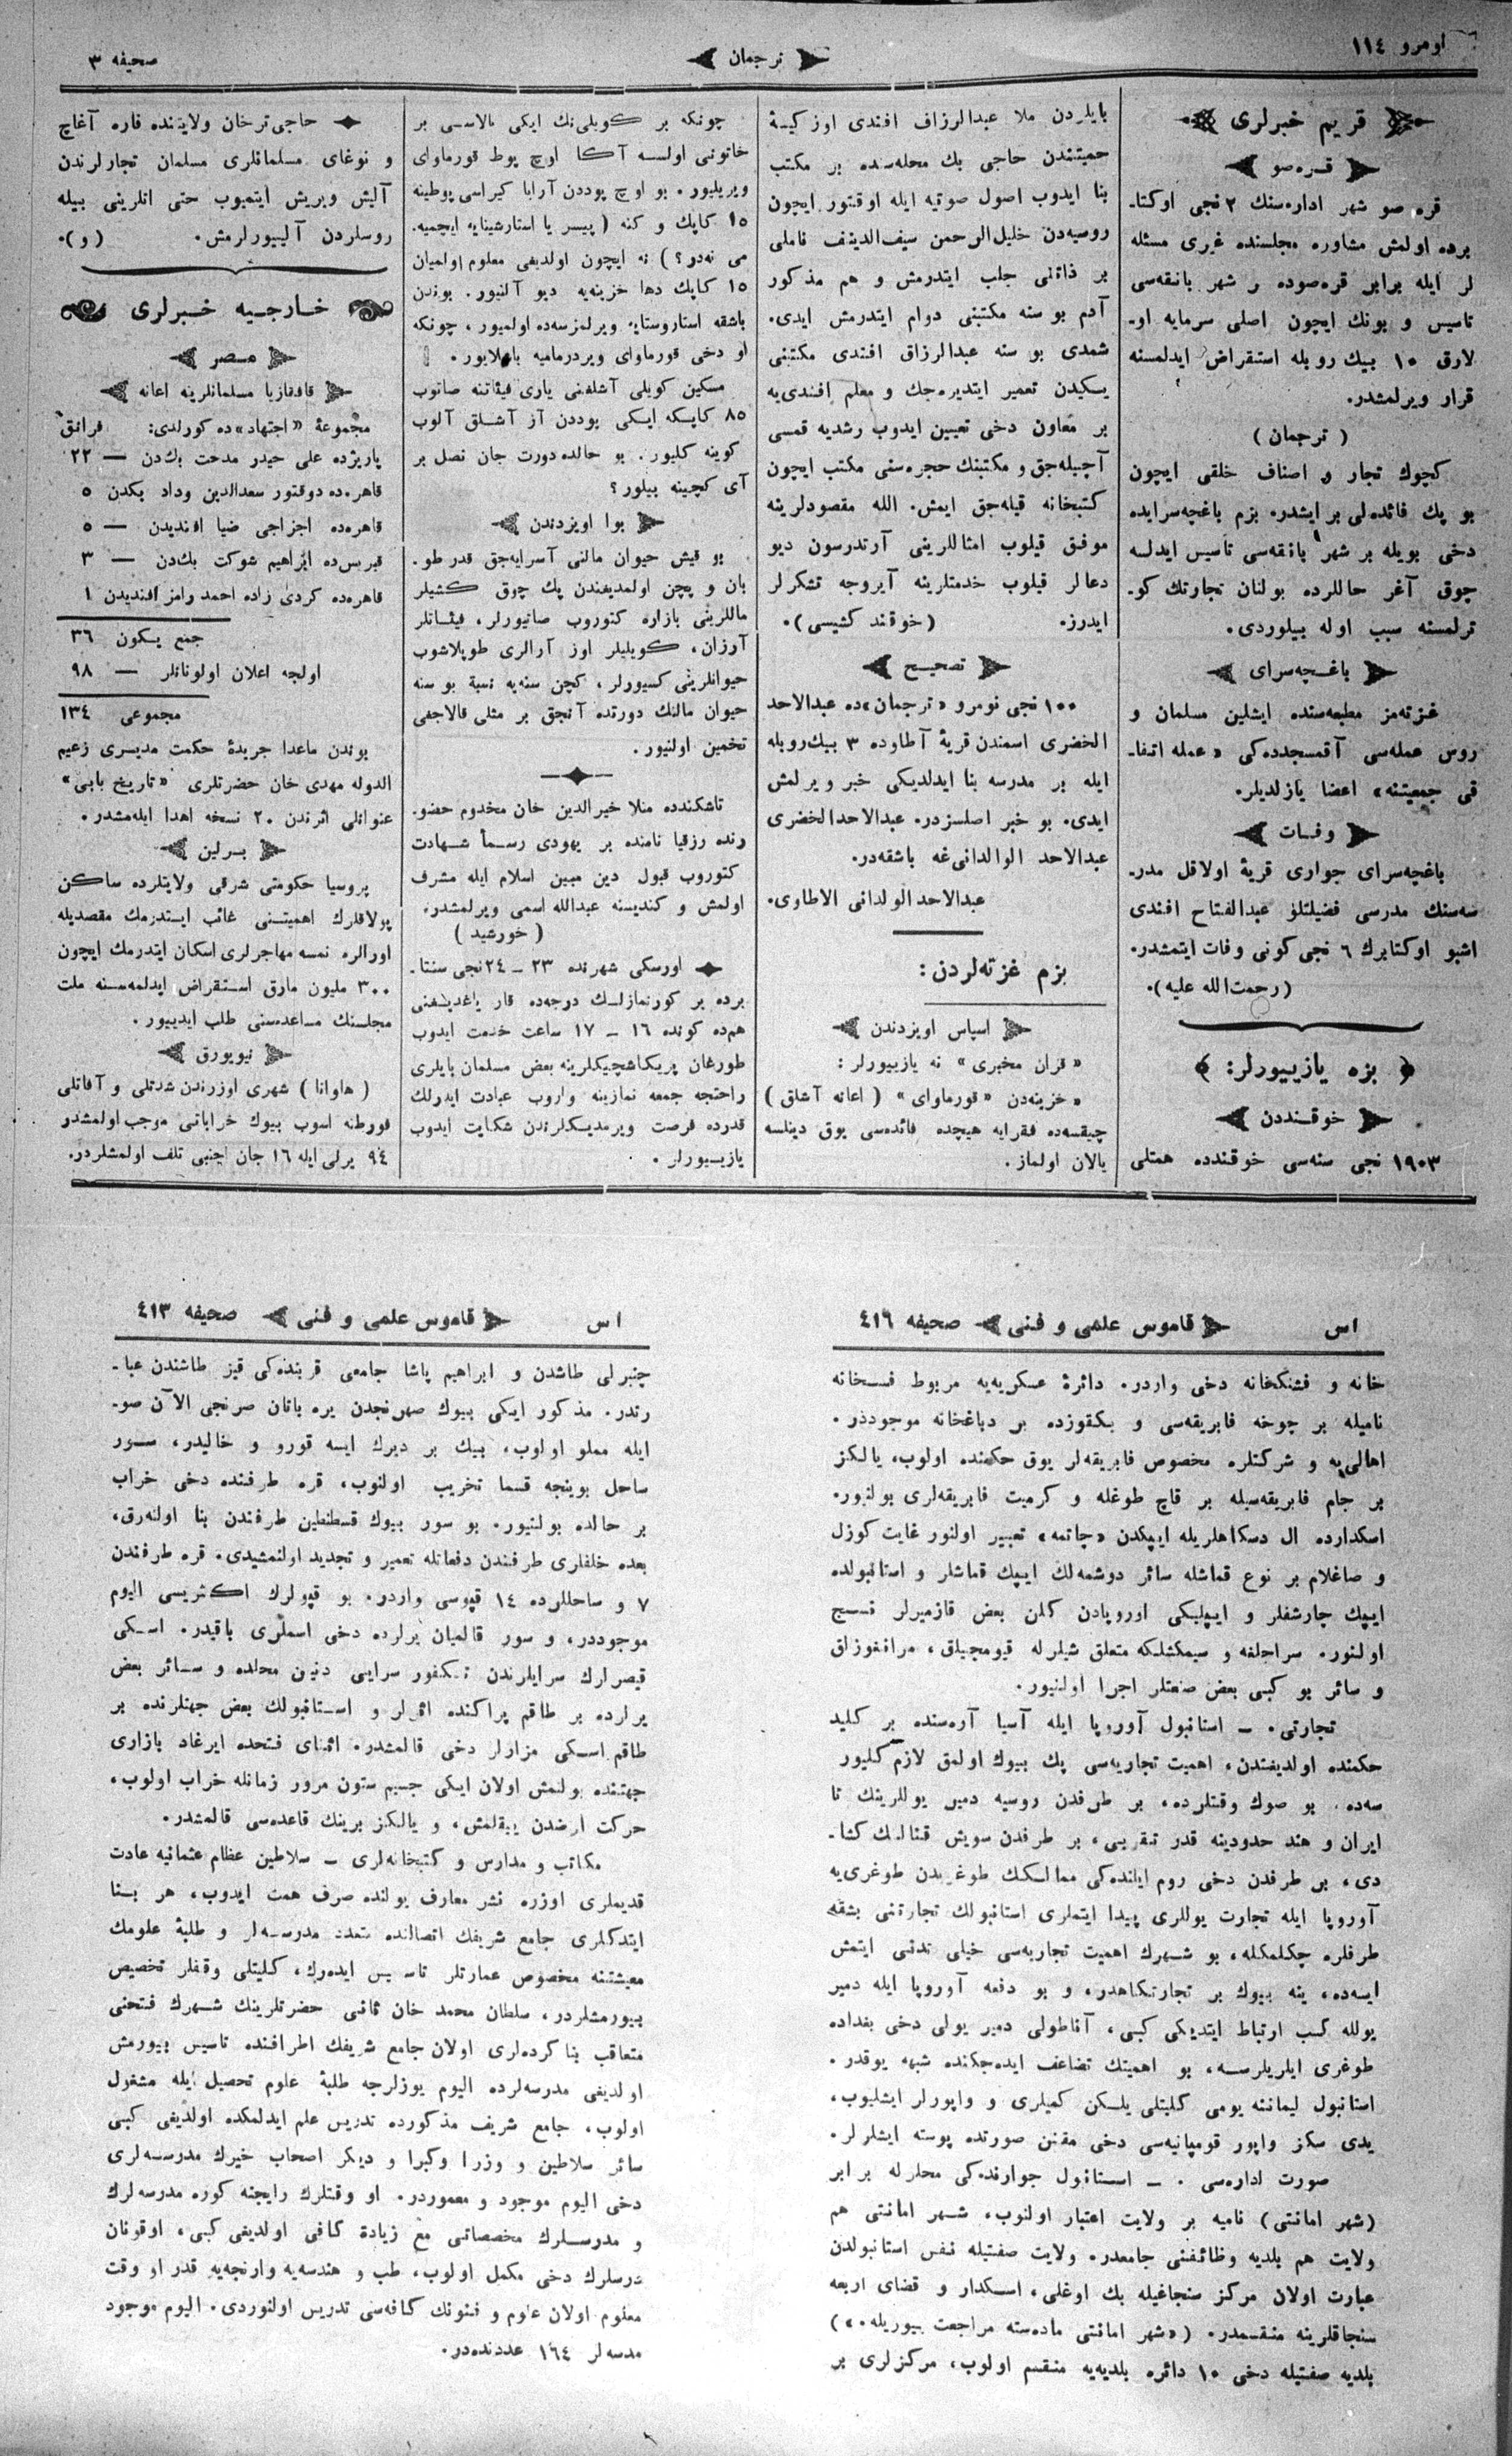 نومرو ١١٤
ترجمان
صحیفه ٣
قریم خبرلری
قره‌صو
قره صو شهر اداره‌سنك ٢ نجی اوكتا-
برده اولمش مشاوره مجلسنده غیری مسئله
لر ایله برابر قره‌صوده و شهر بانقه‌سی
تاسیس و بونك ایچون اصلی سرمایه او-
لارق ١٠ بیك روبله استقراض ایدلمسنه
قرار ویرلمشدر.
( ترجمان )
كچوك تجار و اصناف خلقی ایچون
بو پك فائده‌لی بر ایشدر. بزم باغچه‌سرایده
دخی بویله بر شهر بانقه‌سی تأسیس ایدلسه
چوق آغر حاللرده بولنان تجارتك كو-
ترلمسنه سبب اوله بیلوردی.
باغچه‌سرای
غزته‌مز مطبعه‌سنده ایشلین مسلمان و
روس عمله‌سی آقمسجدده‌كی «عمله اتفا-
قی جمعیتنه» اعضا یازلدیلر.
وفات
باغچه‌سرای جواری قریهٔ اولاقل مدر-
سه‌سنك مدرسی فضیلتلو عبدالفتاح افندی
اشبو اوكتابرك ٦ نجی كونی وفات ایتمشدر.
(رحمت‌الله علیه).
بزه یازییورلر:
خوقنددن
١٩٠٣ نجی سنه‌سی خوقندده همتلی
بایلردن ملا عبدالرزاق افندی اوز كیسهٔ
حمیتندن حاجی بك محله‌سده بر مكتب
بنا ایدوب اصول صوتیه ایله اوقتور ایچون
روسیه‌دن خلیل‌الرحمن سیف‌الدینف ناملی
بر ذاتنی جلب ایتدرمش و هم مذكور
آدم بو سنه مكتبنی دوام ایتدرمش ایدی.
شمدی بو سنه عبدالرزاق افندی مكتبنی
یكیدن تعمیر ایتدیره‌جك و معلم افندی‌یه
بر معاون دخی تعیین ایدوب رشدیه قسمی
آچیله‌جق و مكتبنك حجره‌سنی مكتب ایچون
كتبخانه قیله‌جق ایمش. الله مقصودلرینه
موفق قیلوب امثاللرینی آرتدرسون دیو
دعالر قیلوب خدمتلرینه آیروجه تشكرلر
ایدرز. (خوقند كشیسی).
تصحیح
١٠٠ نجی نومرو «ترجمان»ده عبدالاحد
الخضری اسمندن قریهٔ آطاوده ٣ بیك‌روبله
ایله بر مدرسه بنا ایدلدیكی خبر ویرلمش
ایدی. بو خبر اصلسزدر. عبدالاحدالخضری
عبدالاحد الوالدانی‌غه باشقه‌در.
عبدالاحد الولدانی الاطاوی.
بزم غزته‌لردن:
اسپاس اویزدندن
«قزان مخبری» نه یازییورلر:
«خزینه‌دن «قورماوای» (اعانه آشلق)
چیقسه‌ده فقرایه هیچده فائده‌سی یوق دینلسه
یالان اولماز.
چونكه بر كویلی‌نك ایكی بالاسی بر
خاتونی اولسه آكا اوچ پوط قورماوای
ویریلیور. بو اوچ پوددن آرابا كیراسی پوطینه
١٥ كاپك و كنه (پیسر یا استارشینایه ایچمیه-
می نه‌در؟) نه ایچون اولدیغی معلوم اولمیان
١٥ كاپك دها خزینه‌یه دیو آلنیور. بوندن
باشقه استاروستایه ویرلمزسه‌ده اولمیور، چونكه
او دخی قورماوای ویردرمامیه باشلایور.
مسكین كویلی آشلغنی یاری فیئاتنه صاتوب
٨٥ كاپكه ایكی پوددن آز آشلق آلوب
كوینه كلیور. بو حالده دورت جان نصل بر
آی كچینه بیلور؟
بوا اویزدندن
بو قیش حیوان مالنی آسرایه‌جق قدر طو-
بان و پچن اولمدیغندن پك چوق كشیلر
ماللرینی بازاره كتوروب صاتیورلر، فیئاتلر
آرزان، كویلیلر اوز آرالری طوپلاشوب
حیوانلرینی كسیورلر، كچن سنه‌یه نسبة بو سنه
حیوان مالنك دورتده آنجق بر مثلی قالاجغی
تخمین اولنیور.
تاشكندده منلا خیرالدین خان مخدوم حضو-
رنده رزقیا نامنده بر یهودی رسماً شهادت
كتوروب قبول دین مبین اسلام ایله مشرف
اولمش و كندیسنه عبدالله اسمی ویرلمشدر.
( خورشید )
اورسكی شهرنده ٢٣ - ٢٤نجی سنتا-
برده بر كورنمازلك درجه‌ده قار یاغدیغنی
هم‌ده كونده ١٦ - ١٧ ساعت خدمت ایدوب
طورغان پریكاشچیكلرینه بعض مسلمان بایلری
راحتجه جمعه نمازینه واروب عبادت ایدرلك
قدرده فرصت ویرمدیكلرندن شكایت ایدوب
یازیییورلر.
حاجی‌ترخان ولایتنده قاره آغاچ
و نوغای مسلمانلری مسلمان تجارلرندن
آلیش ویریش ایتمیوب حتی اتلرینی بیله
روسلردن آلیبورلرمش. (و).
خارجیه خبرلری
مصر
قافقازیا مسلمانلرینه اعانه
مجموعهٔ «اجتهاد»ده كورلدی: فرانق
پاریژده علی حیدر مدحت بك‌دن — ٢٢
قاهره‌ده دوقتور سعدالدین وداد بكدن ٥
قاهره‌ده اجزاجی ضیا افندیدن — ٥
قبریس‌ده ابراهیم شوكت بك‌دن — ٣
قاهره‌ده كردی زاده احمد رامز افندیدن ١
جمع یكون ٣٦
اولجه اعلان اولونانلر — ٩٨
مجموعی ١٣٤
بوندن ماعدا جریدهٔ حكمت مدیری زعیم
الدوله مهدی خان حضرتلری «تاریخ بابی»
عنوانلی اثرندن ٢٠ نسخه اهدا ایله‌مشدر.
برلین
پروسیا حكومتی شرقی ولایتلرده ساكن
پولاقلرك اهمیتنی غائب ایتدرمك مقصدیله
اورالره نمسه مهاجرلری اسكان ایتدرمك ایچون
٣٠٠ ملیون مارق استقراض ایدلمه‌سنه ملت
مجلسنك مساعده‌سنی طلب ایدییور.
نیویورق
( هاوانا ) شهری اوزرندن شدتلی و آفاتلی
فورطنه اسوب بیوك خراباتی موجب اولمشدر
٩٤ یرلی ایله ١٦ جان اجنبی تلف اولمشلردر.
اس
قاموس علمی و فنی
صحیفه ٤١٦
خانه و فشنكخانه دخی واردر. دائرهٔ عسكریه‌یه مربوط فسخانه
نامیله بر چوخه فابریقه‌سی و بكقوزده بر دباغخانه موجوددر.
اهالی‌یه و شركتلره مخصوص فابریقه‌لر یوق حكمنده اولوب، یالكز
بر جام فابریقه‌سیله بر قاچ طوغله و كرمیت فابریقه‌لری بولنیور.
اسكدارده ال دسكاهلریله ایپكدن «چاتمه» تعبیر اولنور غایت كوزل
و صاغلام بر نوع قماشله سائر دوشمه‌لك ایپك قماشلر و استانبولده
ایپك چارشفلر و ایپلیكی اوروپادن كلن بعض قازمیرلر نسج
اولنور. سراجلغه و سیمكشلكه متعلق شیلرله قیومجیلق، مرانغوزلق
و سائر بو كبی بعض صنعتلر اجرا اولنیور.
تجارتی. — استانبول آوروپا ایله آسیا آره‌سنده بر كلید
حكمنده اولدیغندن، اهمیت تجاریه‌سی پك بیوك اولمق لازم كلیور
سه‌ده، بو صوك وقتلرده، بر طرفدن روسیه دمیر یوللرینك تا
ایران و هند حدودینه قدر تقریبی، بر طرفدن سویش قنالنك كشا-
دی، بر طرفدن دخی روم ایلنده‌كی ممالكك طوغریدن طوغری‌یه
آوروپا ایله تجارت یوللری پیدا ایتملری استانبولك تجارتنی بشقه
طرفلره چكلمكله، بو شهرك اهمیت تجاریه‌سی خیلی تدنی ایتمش
ایسه‌ده، ینه بیوك بر تجارتكاهدر، و بو دفعه آوروپا ایله دمیر
یولله كسب ارتباط ایتدیكی كبی، آناطولی دمیر یولی دخی بغداده
طوغری ایلریلرسه، بو اهمیتك تضاعف ایده‌جكنده شبهه یوقدر.
استانبول لیماننه یومی كلیتلی یلكن كمیلری و واپورلر ایشلیوب،
یدی سكز واپور قومپانیه‌سی دخی مقنن صورتده پوسته ایشلرلر.
صورت اداره‌سی. — استانبول جوارنده‌كی محلرله برابر
(شهر امانتی) نامیه بر ولایت اعتبار اولنوب، شهر امانتی هم
ولایت هم بلدیه وظائفنی جامعدر. ولایت صفتیله نفس استانبولدن
عبارت اولان مركز سنجاغیله بك اوغلی، اسكدار و قضای اربعه
سنجاقلرینه منقسمدر. («شهر امانتی ماده‌سنه مراجعت بیوریله.»)
بلدیه صفتیله دخی ١٠ دائره بلدیه‌یه منقسم اولوب، مركزلری بر
اس
قاموس علمی و فنی
صحیفه ٤١٣
چنبرلی طاشدن و ابراهیم پاشا جامعی قربنده‌كی قیز طاشندن عبا-
رتدر. مذكور ایكی بیوك صهرنجدن یره باتان صرنجی الآن صو-
ایله مملو اولوب، بیك بر دیرك ایسه قورو و خالیدر، سور
ساحل بوینجه قسما تخریب اولنوب، قره طرفنده دخی خراب
بر حالده بولنیور. بو سور بیوك قسطنطین طرفندن بنا اولنه‌رق،
بعده خلفلری طرفندن دفعاتله تعمیر و تجدید اولنمشیدی. قره طرفندن
٧ و ساحللرده ١٤ قپوسی واردر. بو قپولرك اكثریسی الیوم
موجوددر، و سور قالمیان یرلرده دخی اسملری باقیدر. اسكی
قیصرلرك سرایلرندن تكفور سرایی دنین محلده و سائر بعض
یرلرده بر طاقم پراكنده اثرلر و استانبولك بعض جهتلرنده بر
طاقم اسكی مزارلر دخی قالمشدر. اثنای فتحده ایرغاد بازاری
جهتنده بولنمش اولان ایكی جسیم ستون مرور زمانله خراب اولوب،
حركت ارضدن ییقلمش، و یالكز برینك قاعده‌سی قالمشدر.
مكاتب و مدارس و كتبخانه‌لری — سلاطین عظام عثمانیه عادت
قدیملری اوزره نشر معارف یولنده صرف همت ایدوب، هر بنا
ایتدكلری جامع شریفك اتصالنده متعدد مدرسه‌لر و طلبهٔ علومك
معیشتنه مخصوص عمارتلر تاسیس ایده‌رك، كلیتلی وقفلر تخصیص
بیورمشلردر، سلطان محمد خان ثانی حضرتلرینك شهرك فتحنی
متعاقب بنا كرده‌لری اولان جامع شریفك اطرافنده تاسیس بیورمش
اولدیغی مدرسه‌لرده الیوم یوزلرجه طلبهٔ علوم تحصیل ایله مشغول
اولوب، جامع شریف مذكورده تدریس علم ایدلمكده اولدیغی كبی
سائر سلاطین و وزرا وكبرا و دیكر اصحاب خیرك مدرسه‌لری
دخی الیوم موجود و معموردر. او وقتلرك رایجنه كوره مدرسه‌لرك
و مدرسلرك مخصصاتی مع زیادة كافی اولدیغی كبی، اوقونان
درسلرك دخی مكمل اولوب، طب و هندسه‌یه وارنجه‌یه قدر او وقت
معلوم اولان علوم و فنونك كافه‌سی تدریس اولنوردی. الیوم موجود
مدسه‌لر ١٦٤ عددنده‌در.